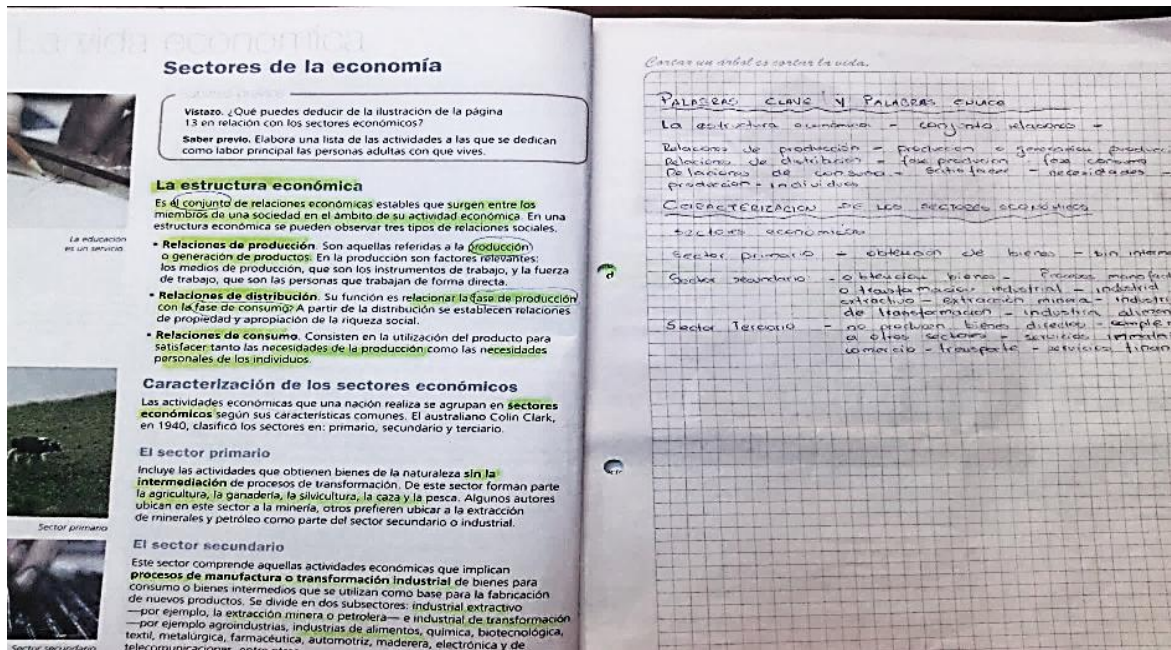 Sectores de la economía
Vistazo. ¿Qué puedes deducir de la ilustración de la página
13 en relación con los sectores económicos?
Saber previo. Elabora una lista de las actividades a las que se dedican
como labor principal las personas adultas con que vives.
La estructura económica
Es el conjunto de relaciones económicas estables que surgen entre los
miembros de una sociedad en el ámbito de su actividad económica. En una
estructura económica se pueden observar tres tipos de relaciones sociales.
• Relaciones de producción. Son aquellas referidas a la producción
o generación de productos. En la producción son factores relevantes:
los medios de producción, que son los instrumentos de trabajo, y la fuerza
de trabajo, que son las personas que trabajan de forma directa.
• Relaciones de distribución. Su función es relacionar la fase de producción
con la fase de consumo. A partir de la distribución se establecen relaciones
de propiedad y apropiación de la riqueza social.
• Relaciones de consumo. Consisten en la utilización del producto para
satisfacer tanto las necesidades de la producción como las necesidades
personales de los individuos.
Caracterización de los sectores económicos
Las actividades económicas que una nación realiza se agrupan en sectores
económicos según sus características comunes. El australiano Colin Clark,
en 1940, clasificó los sectores en: primario, secundario y terciario.
El sector primario
Incluye las actividades que obtienen bienes de la naturaleza sin la
intermediación de procesos de transformación. De este sector forman parte
la agricultura, la ganadería, la silvicultura, la caza y la pesca. Algunos autores
ubican en este sector a la minería, otros prefieren ubicar a la extracción
de minerales y petróleo como parte del sector secundario o industrial.
El sector secundario
Este sector comprende aquellas actividades económicas que implican
procesos de manufactura o transformación industrial de bienes para
consumo o bienes intermedios que se utilizan como base para la fabricación
de nuevos productos. Se divide en dos subsectores: industrial extractivo
—por ejemplo, la extracción minera o petrolera— e industrial de transformación
—por ejemplo agroindustrias, industrias de alimentos, química, biotecnológica,
textil, metalúrgica, farmacéutica, automotriz, maderera, electrónica y de
telecomunicaciones, entre otras
La educación
es un servicio.
Sector primario
Sector secundario
Cortar un árbol es cortar la vida.
PALABRAS CLAVE Y PALABRAS ENLACE
La estructura económica - conjunto relaciones -
Relaciones de producción - producción o generación
Relaciones de distribución - fase producción - fase consumo
Relaciones de consumo - satisfacer - necesidades -
producción - individuos
CARACTERIZACION DE LOS SECTORES ECONÓMICOS
sectores económicos
Sector primario - obtención de bienes - sin
Sector secundario: - obtención bienes - Procesos
o transformación industrial - industrial
extractivo - extracción minera -
de transformación - industria
Sector Terciario - no producen bienes directos -
a otros sectores - servicios
comercio - transporte - servicios